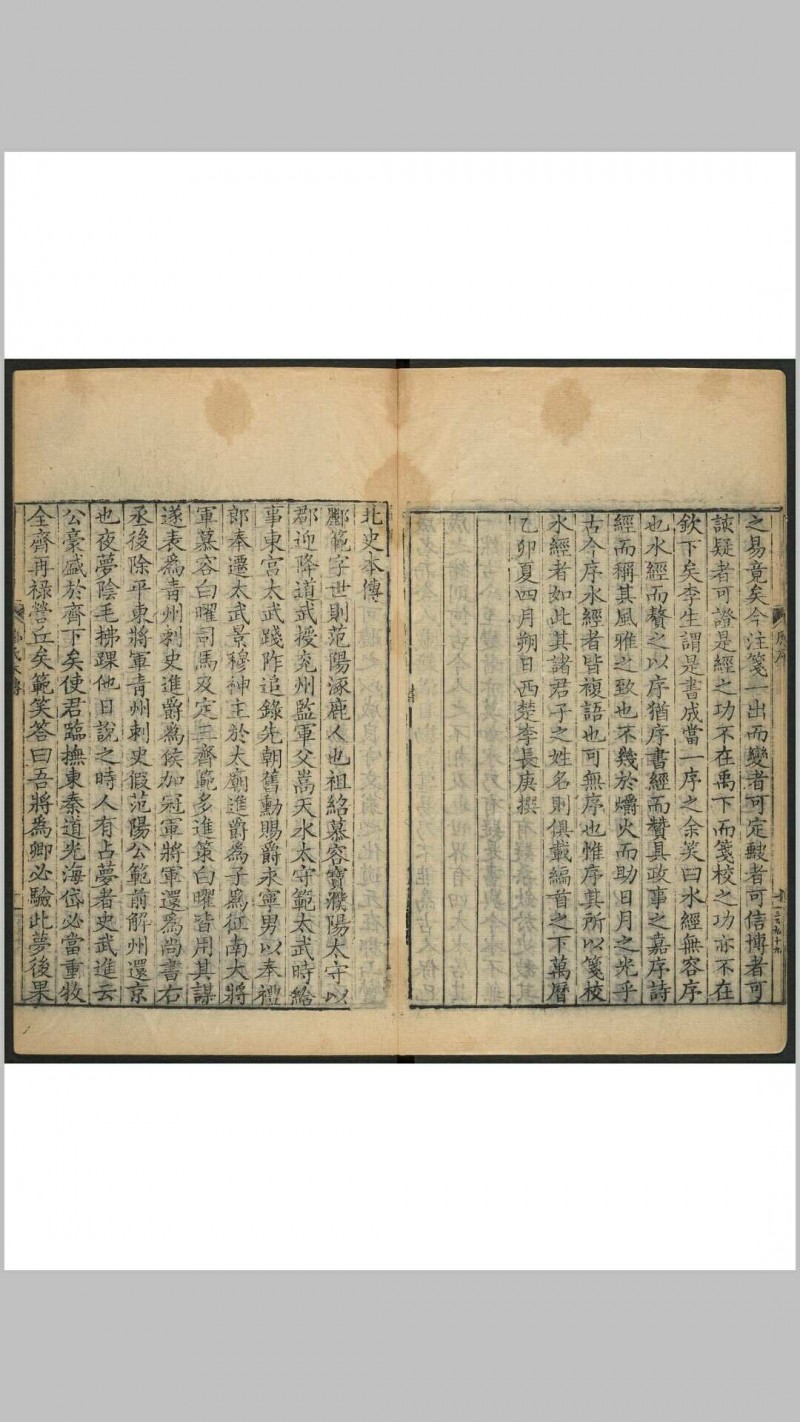 之易竟矣今注箋一出而變者可定䡖者可信博者可
該疑者可證是經之功不在禹下而箋校之功亦不在
欽下矣李生謂是書成當一序之余笑曰水經無容序
也水經而贅之以序猶序書經而贊具政事之嘉序詩
經而稱其風雅之致也不幾於爝火而助日月之光乎
古今序水經者皆複語也可無序也惟序其所以箋校
水經者如此其諸君子之姓名則俱載編首之下萬曆
乙卯夏四月朔日西楚李長庚撰
北史本傳
酈範字世則范陽涿鹿人也祖紹慕容寶濮陽太守以
郡迎降道武授兗州監軍父嵩天水太守範太武時給
事東宮太武踐阼追錄先朝舊勳賜爵永寧男以奉禮
郎奉遷太武景穆神主於太廟進爵為子為征南大將
軍慕容白曜司馬及定三齊範多進策白曜皆用其謀
遂表為青州刺史進爵為侯加冠軍將軍還為尚書右
丞後除平東將軍青州刺史假范陽公範前解州還京
也夜夢陰毛拂踝他日說之時人有占夢者史武進云
公豪盛於齊下矣使君臨撫東秦道光海岱必當重牧
全齊再祿營丘矣範笑答曰吾將為卿必驗此夢後果